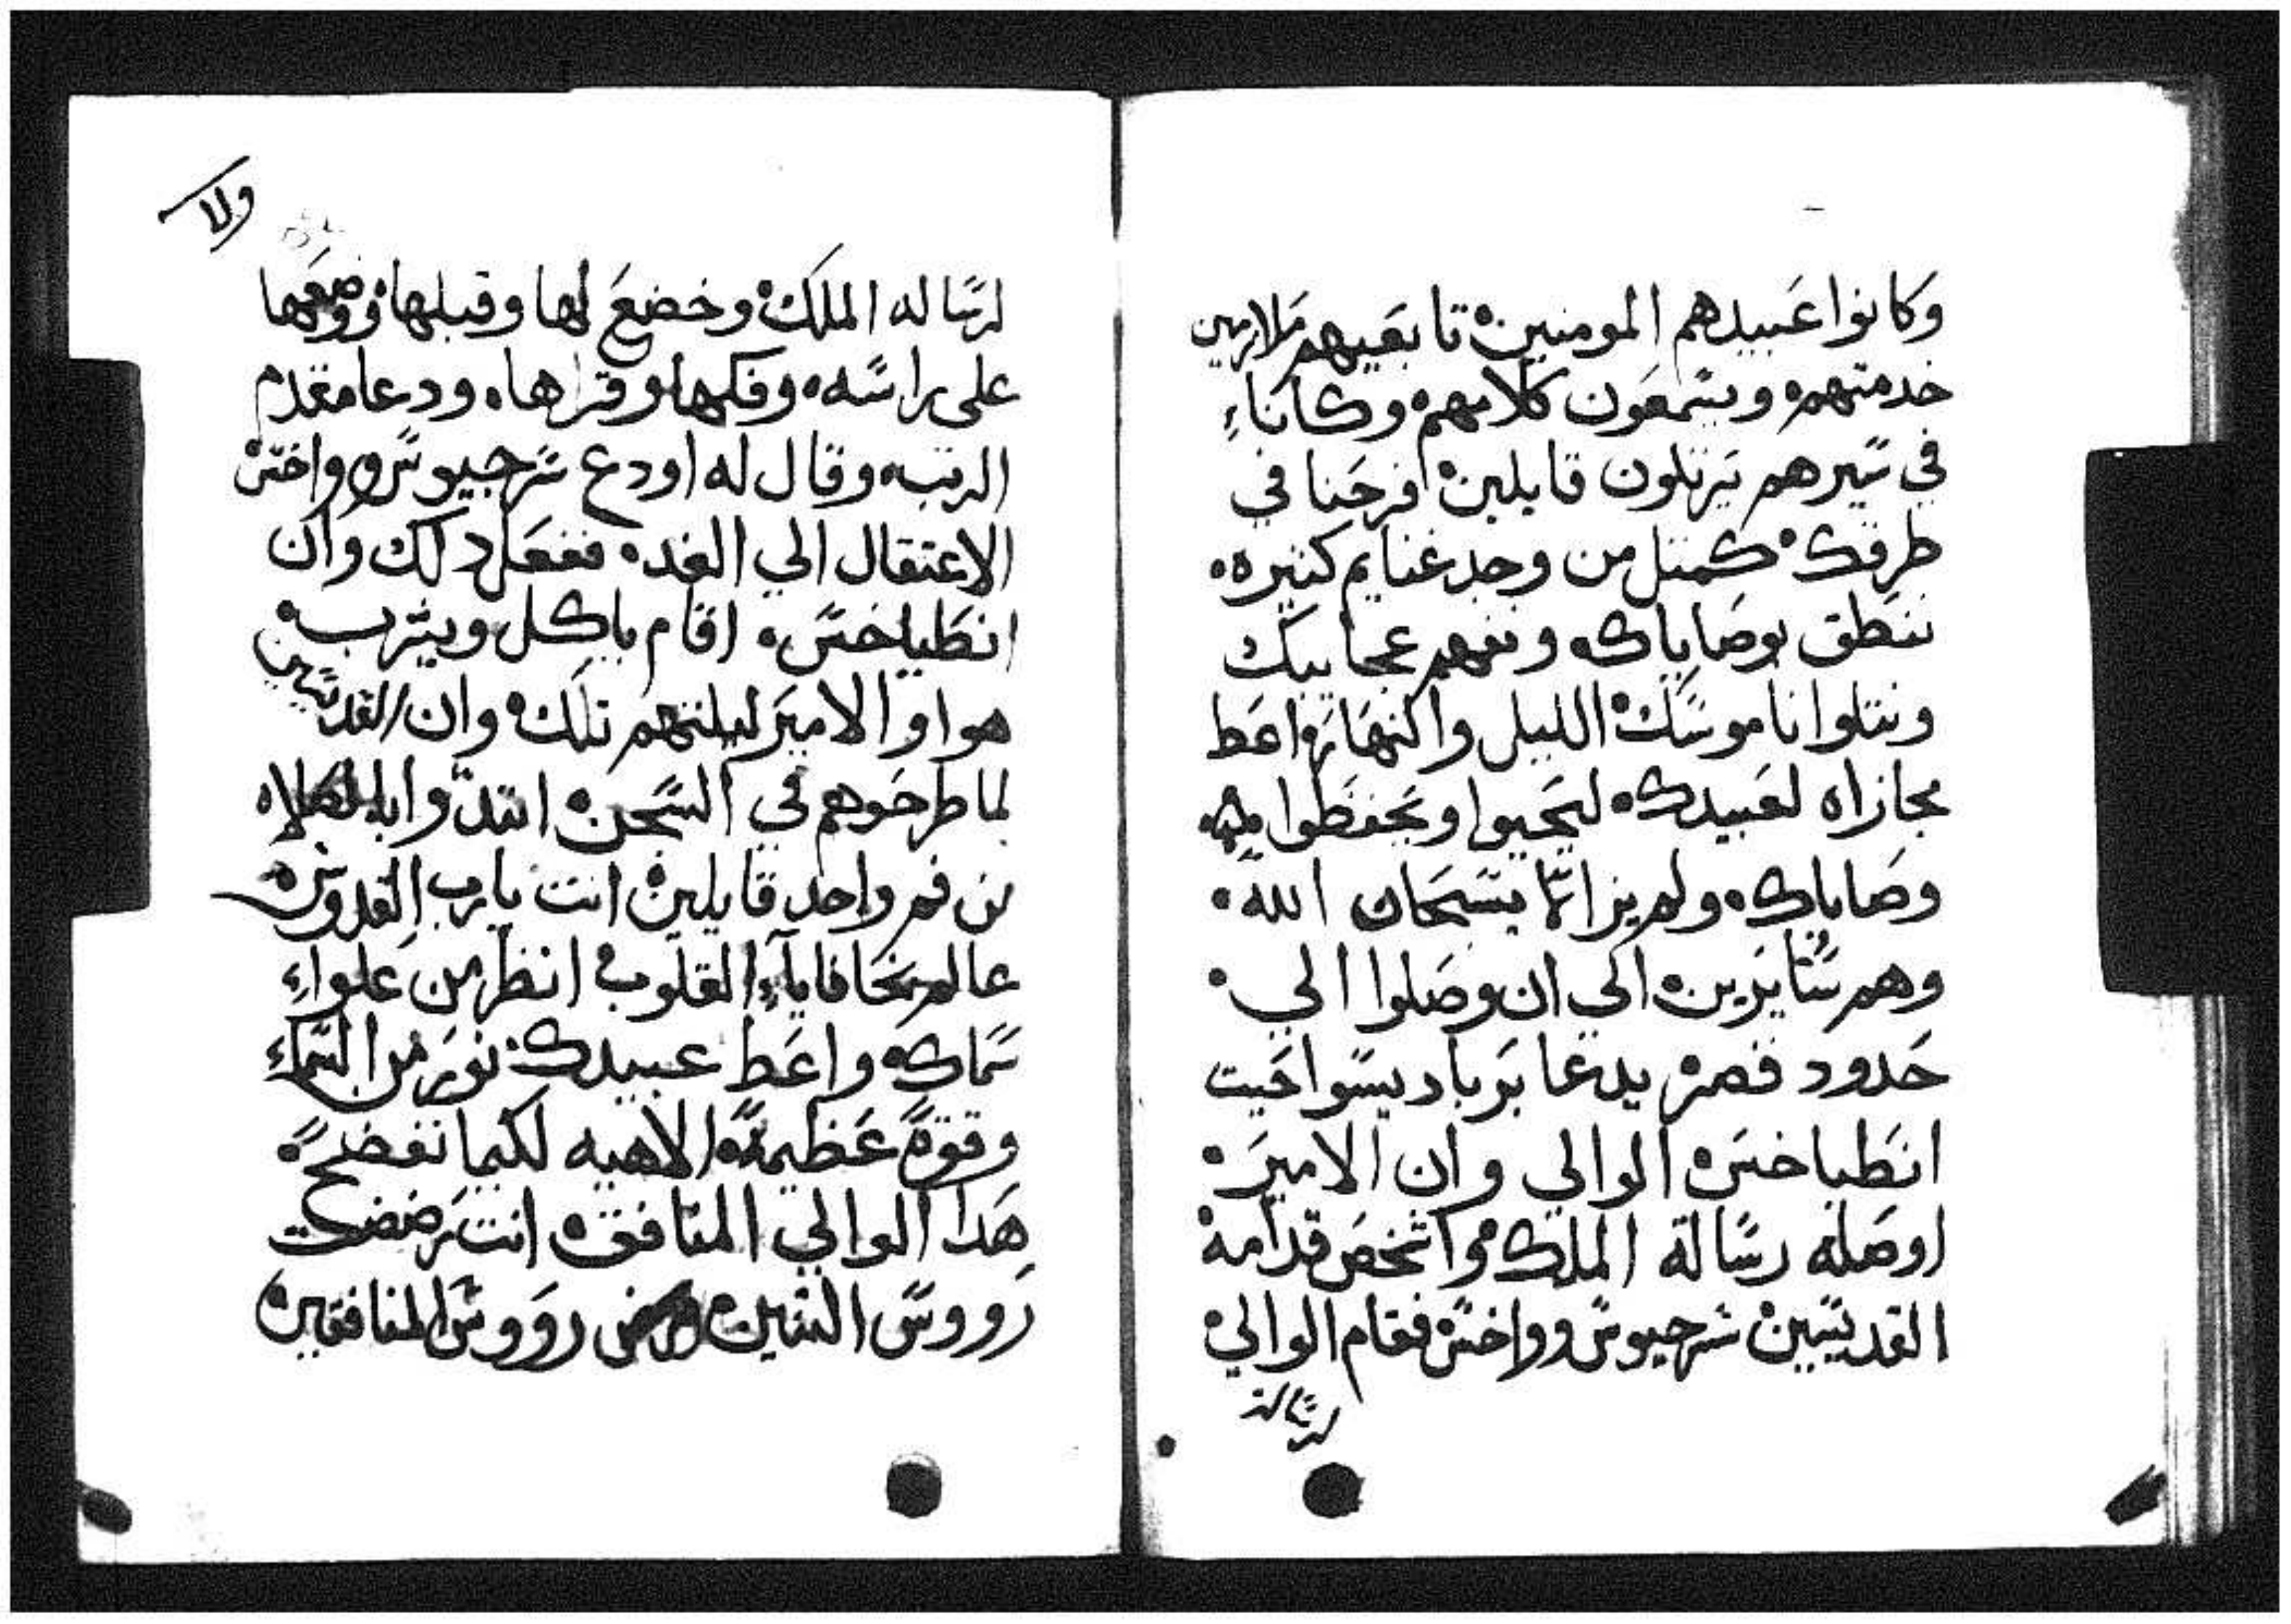 وكانوا عبيدهم المومنين تابعيهم ملازمين
خدمتهم ويسمعون كلامهم وكانا
في سيرهم يرتلون قايلين افرحنا في
طرقك كمتل من وجد غنايم كثيره
ننطق بوصاياك ونفهم عجايبك
ونتلوا ناموسك الليل والنهار واعط
مجازاه لعبيدك ليحيوا ويحفظوا
وصاياك ولم يزالا يسبحان الله
وهم سايرين الي ان وصلوا الي
حدود قصر يدعا برباديسوا حيت
انطياخس الوالي وان الامير
اوصله رسالة الملك واشخص قدامه
القديسين سرجيوس وواخس فقام الوالي
لرسالة
ولا
لرساله الملك وخضع لها وقبلها ووضعها
على راسه وفكها وقراها ودعا مقدم
الرتبه وقال له اودع سرجيوس وواخس
الاعتقال الي الغد ففعل دلك وان
انطياخس اقام ياكل ويشرب
هوا والامير ليلتهم تلك وان القديسين
لما طرحوهم في السجن ابتدوا بالصلاه
من فم واحد قايلين انت يارب القدوس
عالم بخافايا القلوب انظر من علواء
سماك واعط عبيدك نور من السماء
وقوة عظيمة الاهيه لكيما نفضح
هدا الوالي المنافق انت رضضت
رووس التنين رووس المنافقين